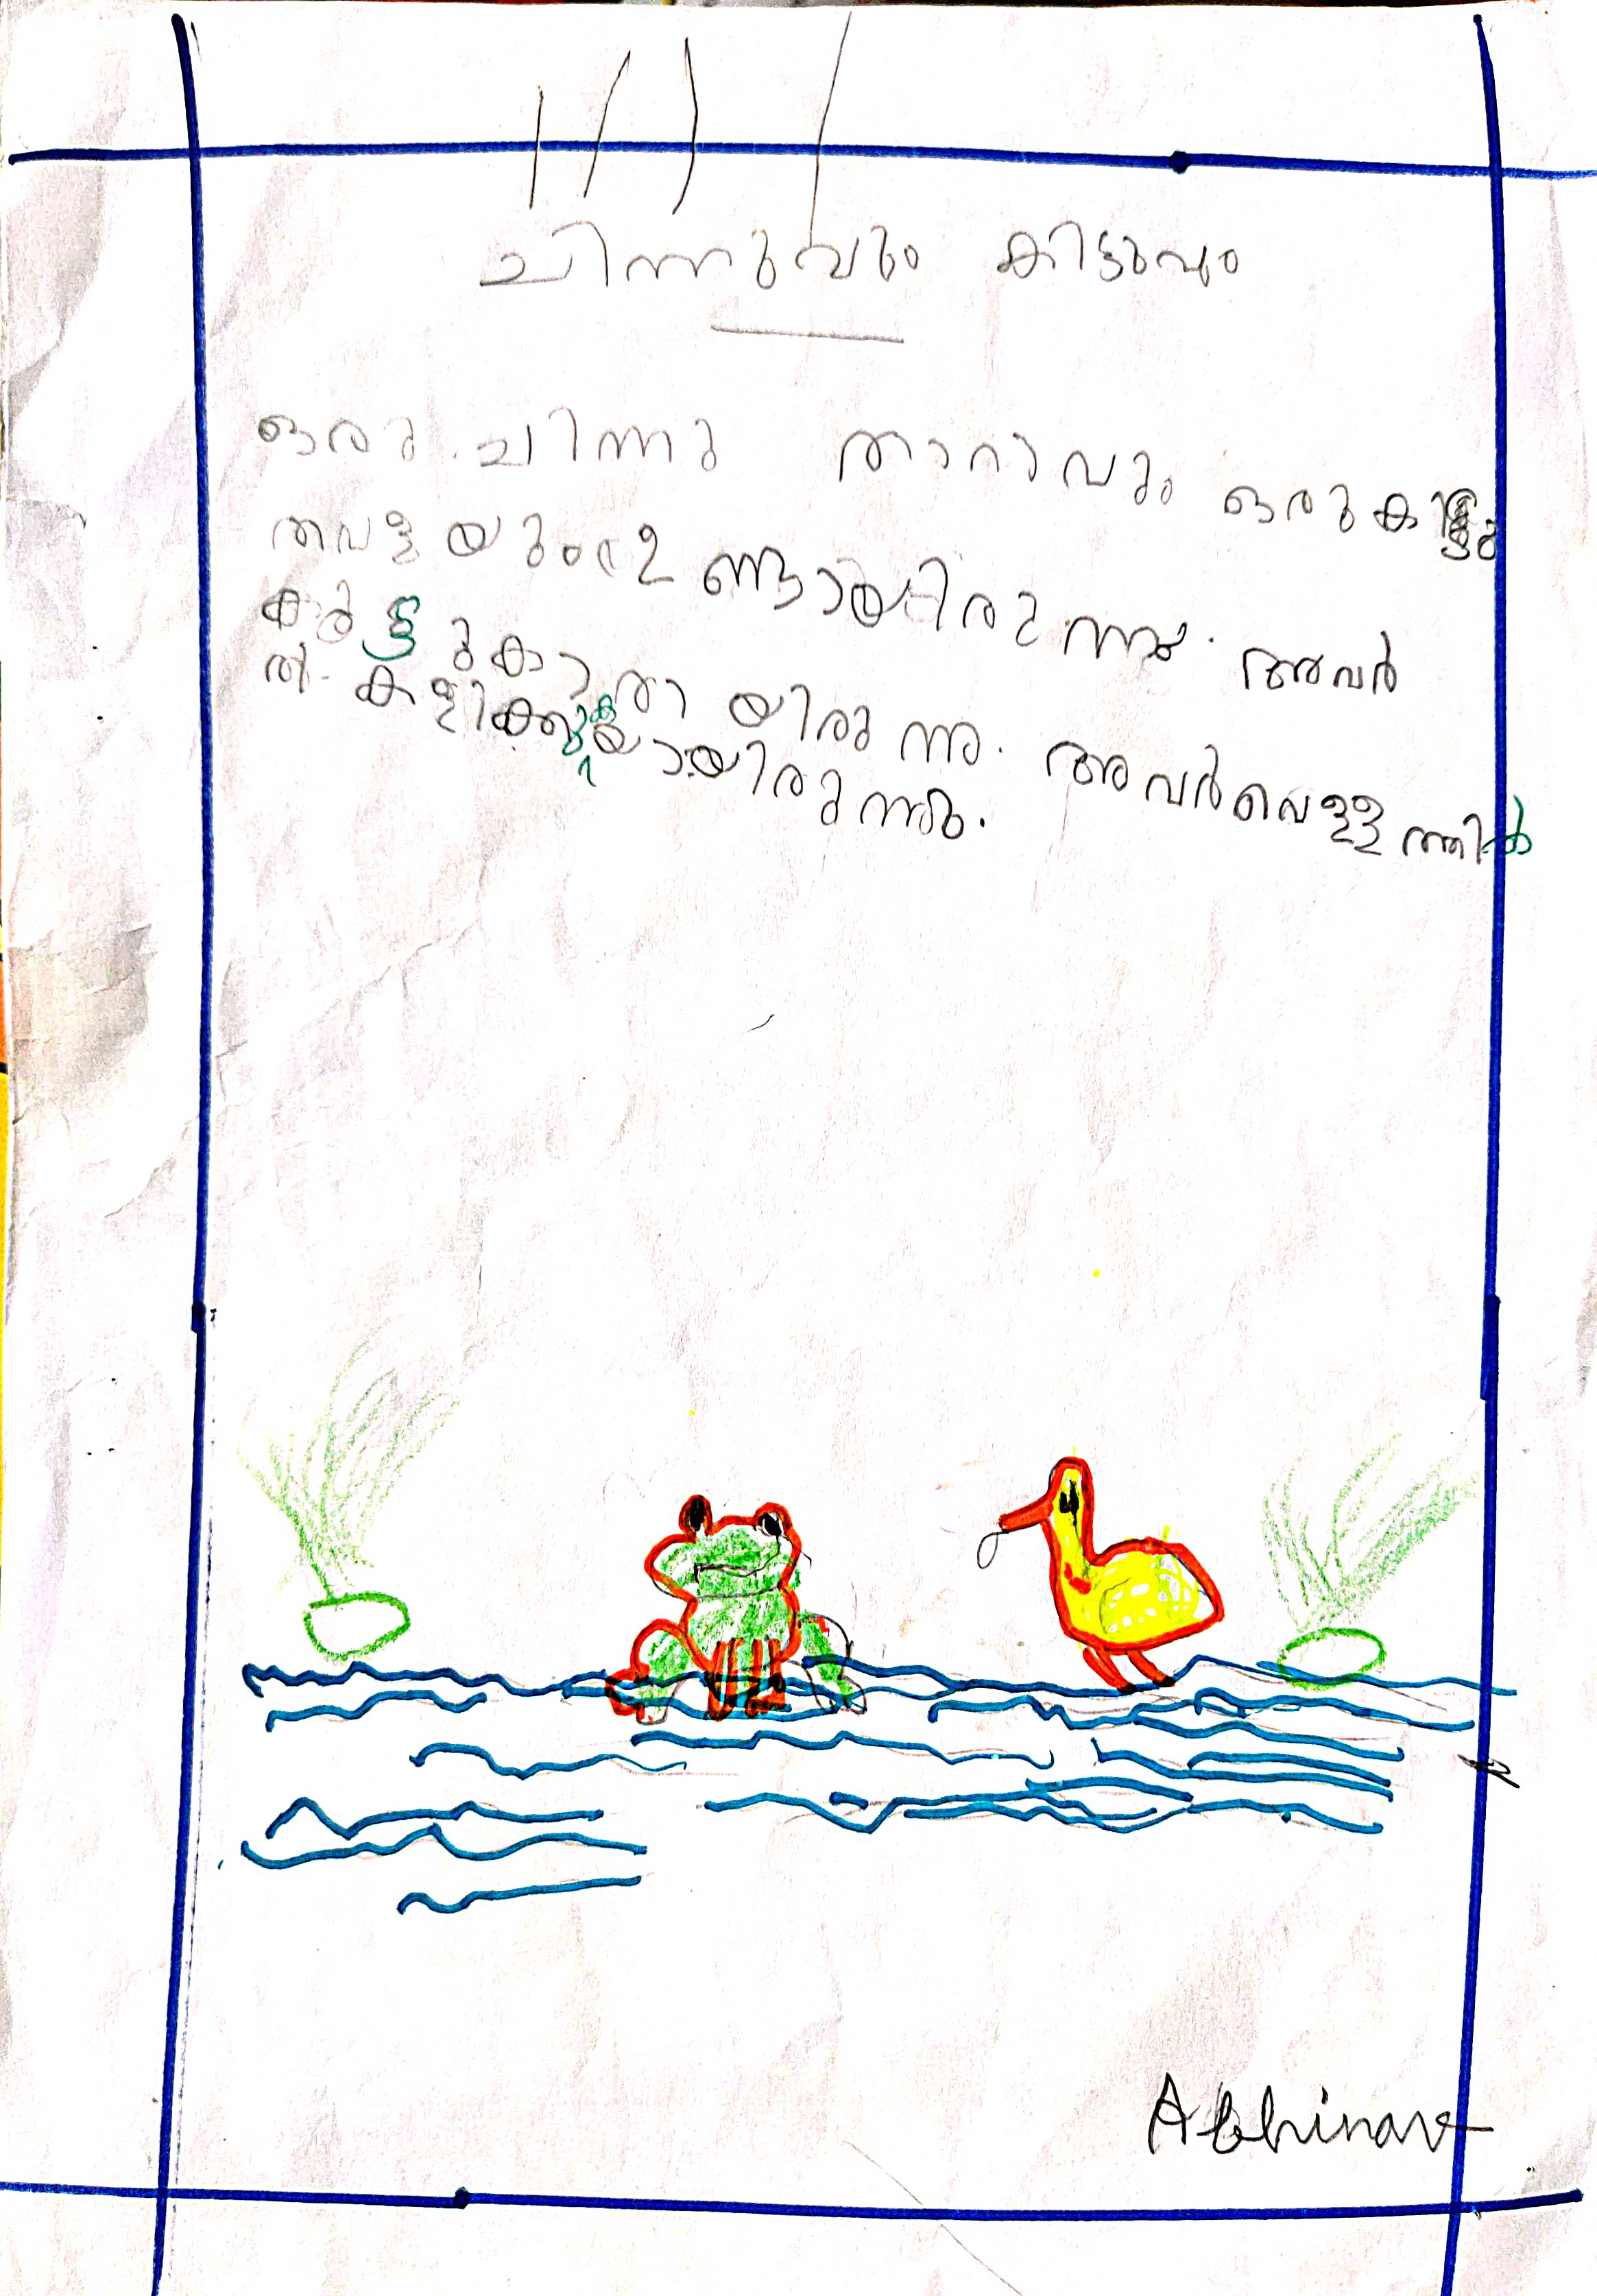 ചിന്നുവും കിട്ടുവും
ഒരു ചിന്നു താറാവും ഒരു കിട്ടു
തവളയും ഉണ്ടായിരുന്നു. അവർ
കൂട്ടുകാരായിരുന്നു. അവർ വെള്ളത്തിൽ
കളിക്കുകയായിരുന്നു.
Abhinav